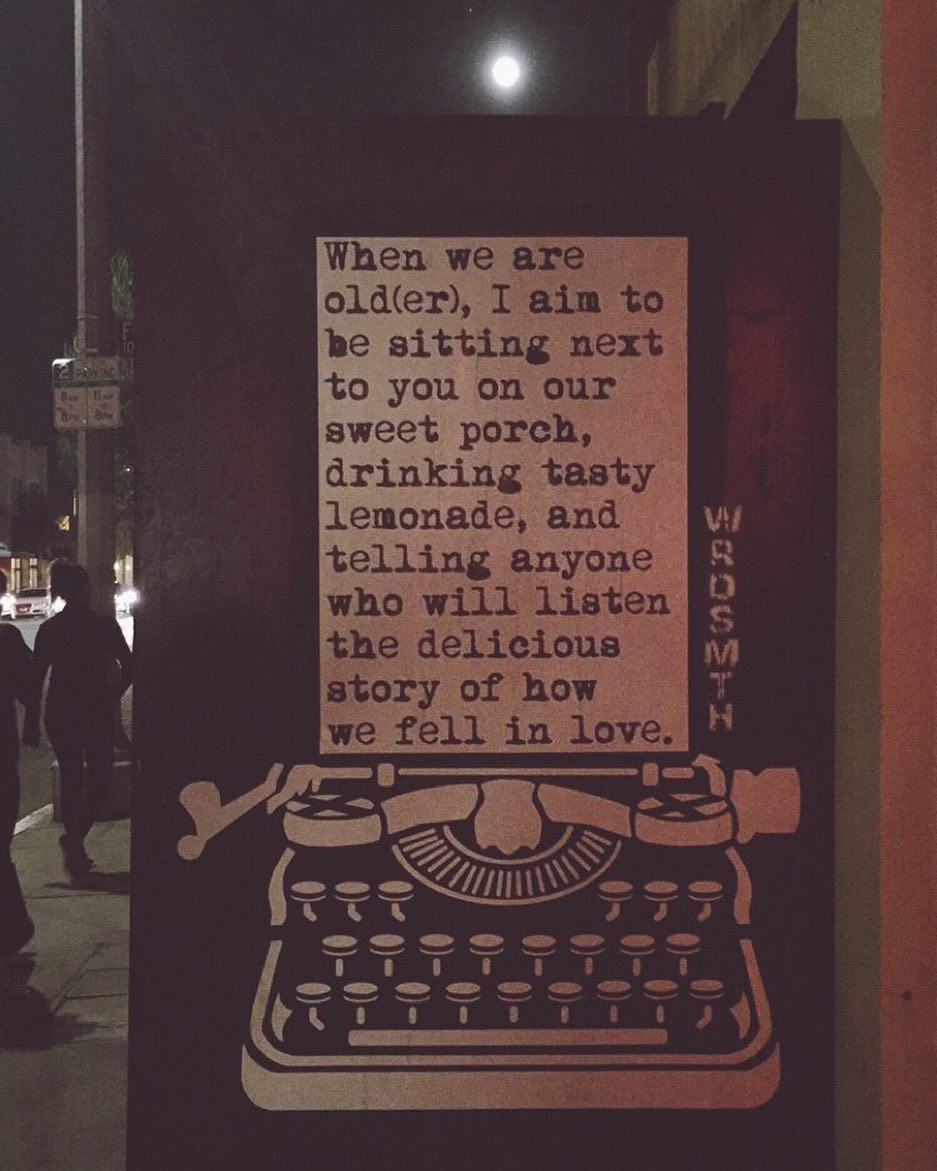 When we are
old(er), I aim to
be sitting next
to you on our
sweet porch,
drinking tasty
lemonade, and
telling anyone
who will listen
the delicious
story of how
we fell in love.
WRDSMTH
2
PARKING
8AM 11AM
8PM 8PM